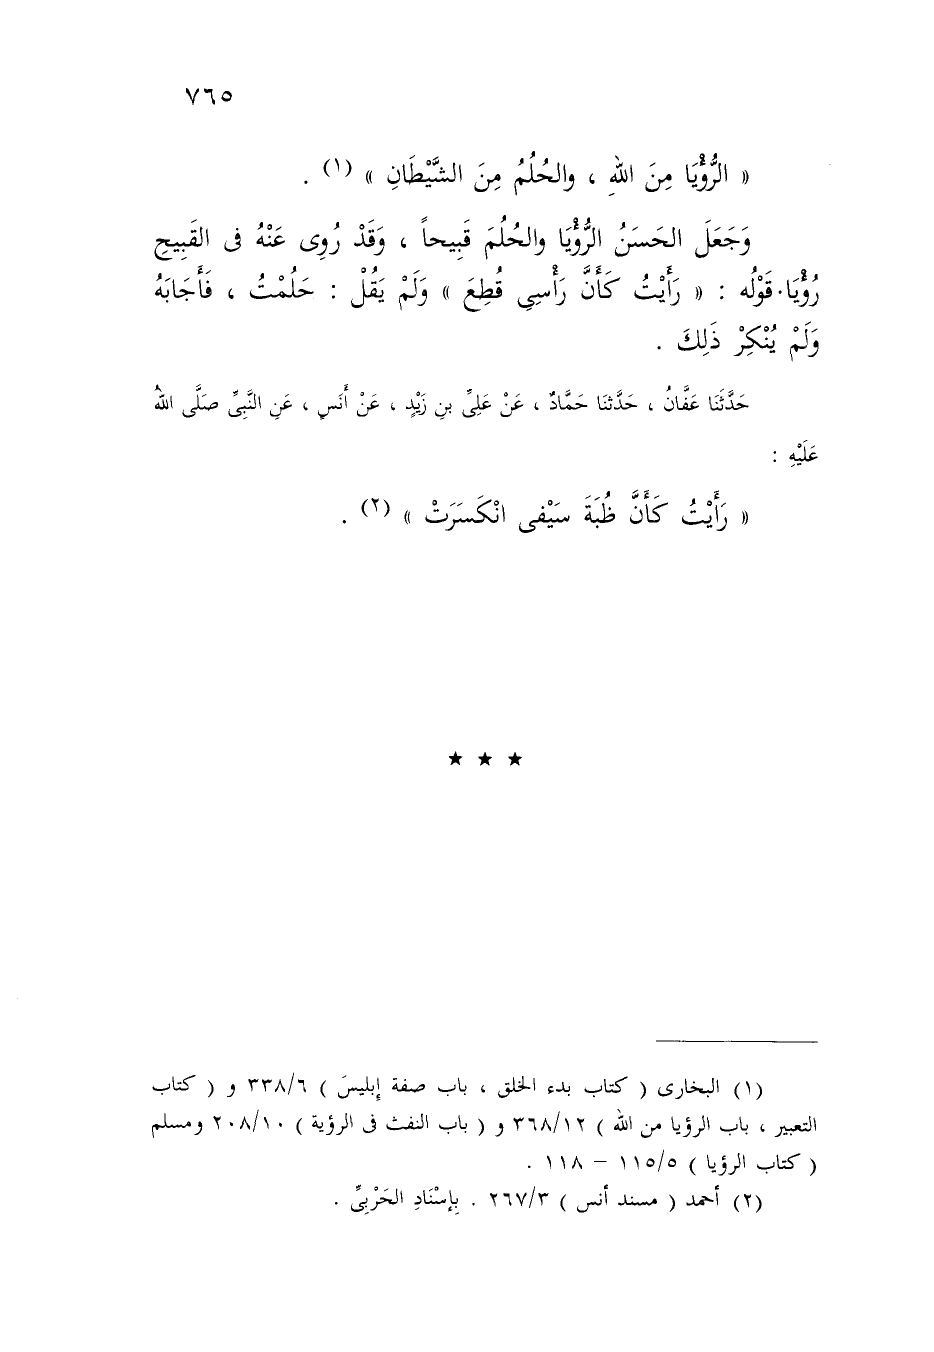 ٧٦٥
« الرُّؤْيَا مِنَ اللهِ ، والحُلُمُ مِنَ الشَّيْطَانِ » (١) .
وَجَعَلَ الحَسَنُ الرُّؤْيَا والحُلُمَ قَبِيحاً ، وَقَدْ رُوِى عَنْهُ فى القَبِيحِ
رُؤْيَا . قَوْلُه : « رَأَيْتُ كَأَنَّ رَأْسِى قُطِعَ » وَلَمْ يَقُلْ : حَلُمْتُ ، فَأَجَابَهُ
وَلَمْ يُنْكِرْ ذَلِكَ .
حَدَّثَنَا عَفَّانُ ، حَدَّثنَا حَمَّادٌ ، عَنْ عَلِىِّ بنِ زَيْدٍ ، عَنْ أَنَسٍ ، عَنِ النَّبِىِّ صَلَّى اللهُ
عَلَيْهِ :
« رَأَيْتُ كَأَنَّ ظُبَةَ سَيْفى انْكَسَرَتْ » (٢) .
★ ★ ★
(١) البخارى ( كتاب بدء الخلق ، باب صفة إبليسَ ) ٣٣٨/٦ و ( كتاب
التعبير ، باب الرؤيا من الله ) ٣٦٨/١٢ و ( باب النفث فى الرؤية ) ٢٠٨/١٠ ومسلم
( كتاب الرؤيا ) ١١٥/٥ – ١١٨ .
(٢) أحمد ( مسند أنس ) ٢٦٧/٣ . بِإسْنَادِ الحَرْبِىِّ .